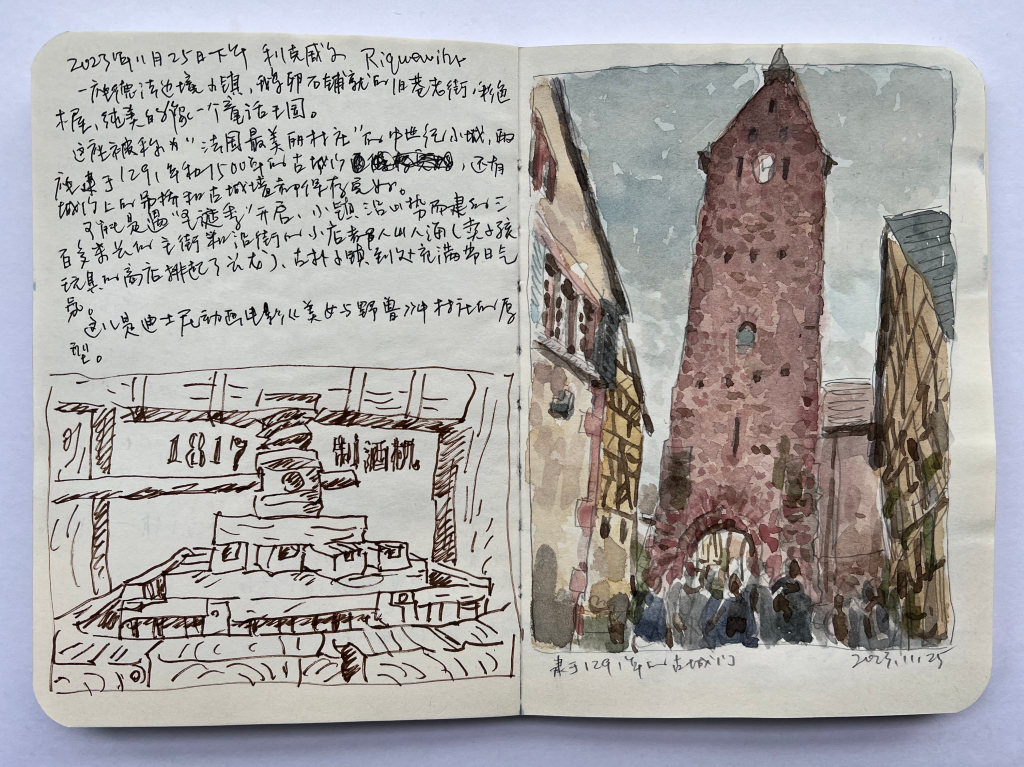 2023年11月25日下午 利克威尔 Riquewihr
一座德法边境小镇，鹅卵石铺就的旧巷老街，彩色
木屋，纯美的像一个童话王国。
这座被称为“法国最美丽村庄”的中世纪小城，两
座建于1291年和1500年的古城门，还有
城门上的吊桥和古城墙都保存完好。
可能是逢“圣诞季”开启，小镇沿山势而建的三
百多米长的主街和沿街的小店都人山人海（卖子孩
玩具的商店排起了长龙），古朴小镇到处充满节日气
氛。
这儿是迪士尼动画电影《美女与野兽》中村庄的原
型。
1817 制酒机
建于1291年的古城门 2023.11.25